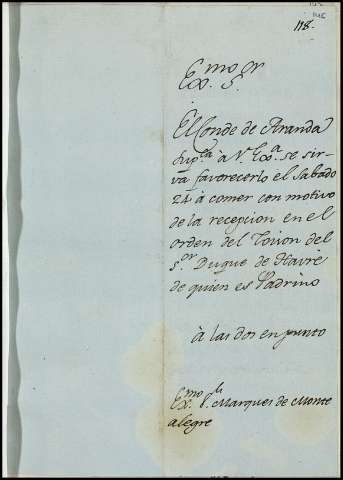 118.
Exmo Sr
El Conde de Aranda
supca à V. Exa. se sir-
va favorecerlo el Sabado
24 à comer con motivo
de la recepcion en el
orden del Toison del
Sor Duque de Havré
de quien es Padrino
à las dos en punto
Exmo Sr Marques de Monte
alegre